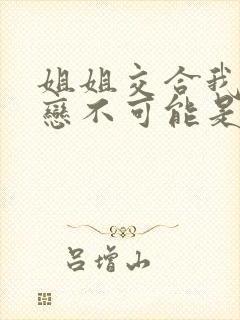 姐姐交合我
戀不可能是
吕增山